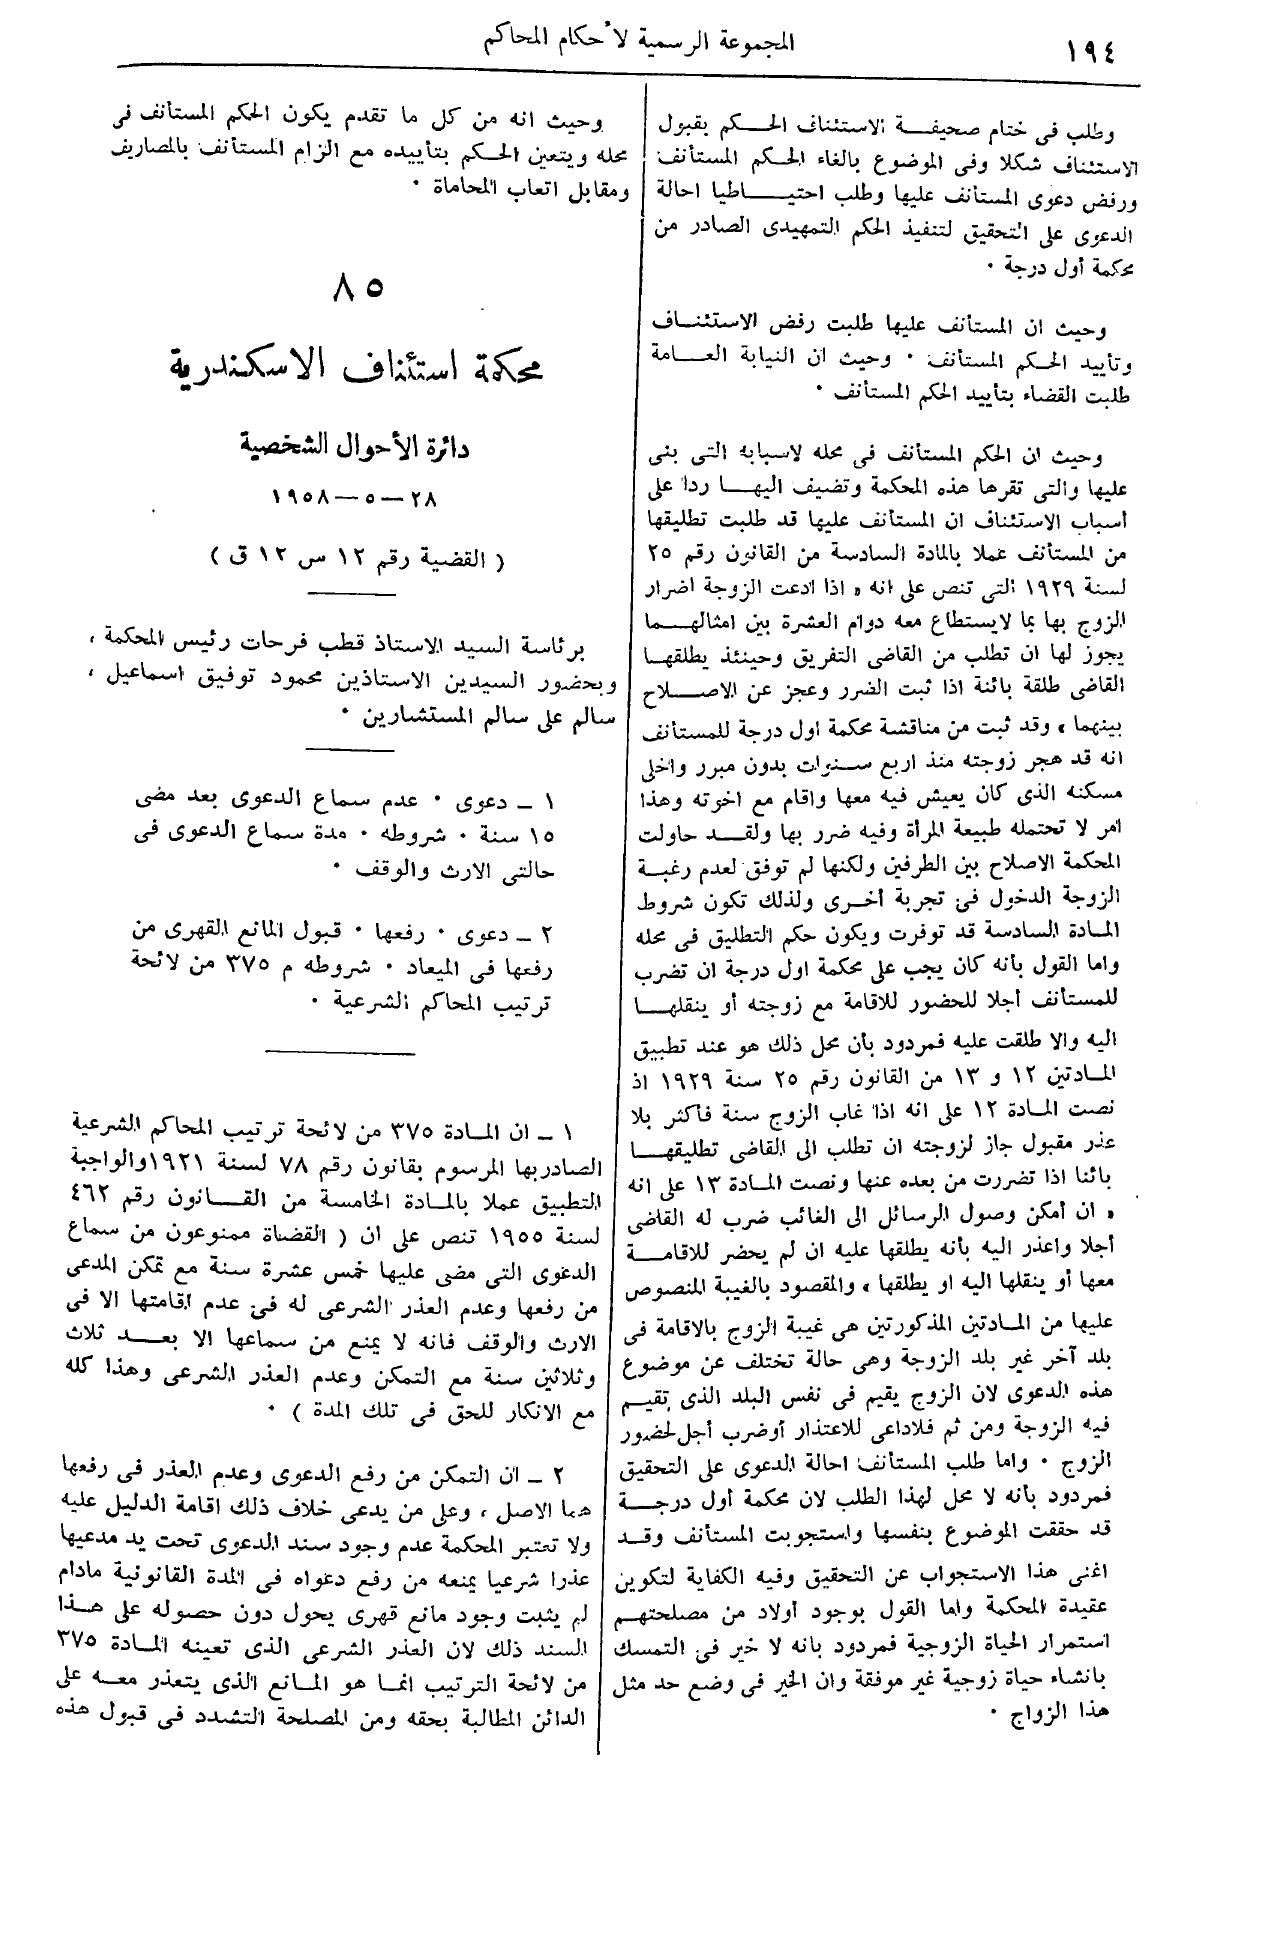 ١٩٤
المجموعة الرسمية لأحكام المحاكم
وطلب فى ختام صحيفة الاستئناف الحكم بقبول
الاستئناف شكلا وفى الموضوع بالغاء الحكم المستأنف
ورفض دعوى المستأنف عليها وطلب احتياطيا احالة
الدعوى على التحقيق لتنفيذ الحكم التمهيدى الصادر من
محكمة أول درجة ٠
وحيث ان المستأنف عليها طلبت رفض الاستئناف
وتأييد الحكم المستأنف ٠ وحيث ان النيابة العامة
طلبت القضاء بتأييد الحكم المستأنف ٠
وحيث ان الحكم المستأنف فى محله لاسبابه التى بنى
عليها والتى تقرها هذه المحكمة وتضيف اليها ردا على
أسباب الاستئناف ان المستأنف عليها قد طلبت تطليقها
من المستأنف عملا بالمادة السادسة من القانون رقم ٢٥
لسنة ١٩٢٩ التى تنص على انه « اذا ادعت الزوجة اضرار
الزوج بها بما لايستطاع معه دوام العشرة بين امثالهما
يجوز لها ان تطلب من القاضى التفريق وحينئذ يطلقها
القاضى طلقة بائنة اذا ثبت الضرر وعجز عن الاصلاح
بينهما » وقد ثبت من مناقشة محكمة اول درجة للمستأنف
انه قد هجر زوجته منذ اربع سنوات بدون مبرر واخلى
مسكنه الذى كان يعيش فيه معها واقام مع اخوته وهذا
امر لا تحتمله طبيعة المرأة وفيه ضرر بها ولقد حاولت
المحكمة الاصلاح بين الطرفين ولكنها لم توفق لعدم رغبة
الزوجة الدخول فى تجربة أخرى ولذلك تكون شروط
المادة السادسة قد توفرت ويكون حكم التطليق فى محله
واما القول بأنه كان يجب على محكمة اول درجة ان تضرب
للمستأنف أجلا للحضور للاقامة مع زوجته أو ينقلها
اليه والا طلقت عليه فمردود بأن محل ذلك هو عند تطبيق
المادتين ١٢ و ١٣ من القانون رقم ٢٥ سنة ١٩٢٩ اذ
نصت المادة ١٢ على انه اذا غاب الزوج سنة فاكثر بلا
عذر مقبول جاز لزوجته ان تطلب الى القاضى تطليقها
بائنا اذا تضررت من بعده عنها ونصت المادة ١٣ على انه
« ان أمكن وصول الرسائل الى الغائب ضرب له القاضى
أجلا واعذر اليه بأنه يطلقها عليه ان لم يحضر للاقامة
معها أو ينقلها اليه او يطلقها » والمقصود بالغيبة المنصوص
عليها من المادتين المذكورتين هى غيبة الزوج بالاقامة فى
بلد آخر غير بلد الزوجة وهى حالة تختلف عن موضوع
هذه الدعوى لان الزوج يقيم فى نفس البلد الذى تقيم
فيه الزوجة ومن ثم فلاداعى للاعتذار أوضرب أجل لحضور
الزوج ٠ واما طلب المستأنف احالة الدعوى على التحقيق
فمردود بأنه لا محل لهذا الطلب لان محكمة أول درجة
قد حققت الموضوع بنفسها واستجوبت المستأنف وقد
اغنى هذا الاستجواب عن التحقيق وفيه الكفاية لتكوين
عقيدة المحكمة واما القول بوجود أولاد من مصلحتهم
استمرار الحياة الزوجية فمردود بانه لا خير فى التمسك
بانشاء حياة زوجية غير موفقة وان الخير فى وضع حد مثل
هذا الزواج ٠
وحيث انه من كل ما تقدم يكون الحكم المستأنف فى
محله ويتعين الحكم بتأييده مع الزام المستأنف بالمصاريف
ومقابل اتعاب المحاماة ٠
٨٥
محكمة استئناف الاسكندرية
دائرة الأحوال الشخصية
٢٨ – ٥ – ١٩٥٨
( القضية رقم ١٢ س ١٢ ق )
برئاسة السيد الاستاذ قطب فرحات رئيس المحكمة ،
وبحضور السيدين الاستاذين محمود توفيق اسماعيل ،
سالم على سالم المستشارين ٠
١ – دعوى ٠ عدم سماع الدعوى بعد مضى
١٥ سنة ٠ شروطه ٠ مدة سماع الدعوى فى
حالتى الارث والوقف ٠
٢ – دعوى ٠ رفعها ٠ قبول المانع القهرى من
رفعها فى الميعاد ٠ شروطه م ٣٧٥ من لائحة
ترتيب المحاكم الشرعية ٠
١ – ان المادة ٣٧٥ من لائحة ترتيب المحاكم الشرعية
الصادربها المرسوم بقانون رقم ٧٨ لسنة ١٩٢١والواجبة
التطبيق عملا بالمادة الخامسة من القانون رقم ٤٦٢
لسنة ١٩٥٥ تنص على ان ( القضاة ممنوعون من سماع
الدعوى التى مضى عليها خمس عشرة سنة مع تمكن المدعى
من رفعها وعدم العذر الشرعى له فى عدم اقامتها الا فى
الارث والوقف فانه لا يمنع من سماعها الا بعد ثلاث
وثلاثين سنة مع التمكن وعدم العذر الشرعى وهذا كله
مع الانكار للحق فى تلك المدة ) ٠
٢ – ان التمكن من رفع الدعوى وعدم العذر فى رفعها
هما الاصل ، وعلى من يدعى خلاف ذلك اقامة الدليل عليه
ولا تعتبر المحكمة عدم وجود سند الدعوى تحت يد مدعيها
عذرا شرعيا يمنعه من رفع دعواه فى المدة القانونية مادام
لم يثبت وجود مانع قهرى يحول دون حصوله على هذا
السند ذلك لان العذر الشرعى الذى تعينه المادة ٣٧٥
من لائحة الترتيب انما هو المانع الذى يتعذر معه على
الدائن المطالبة بحقه ومن المصلحة التشدد فى قبول هذه